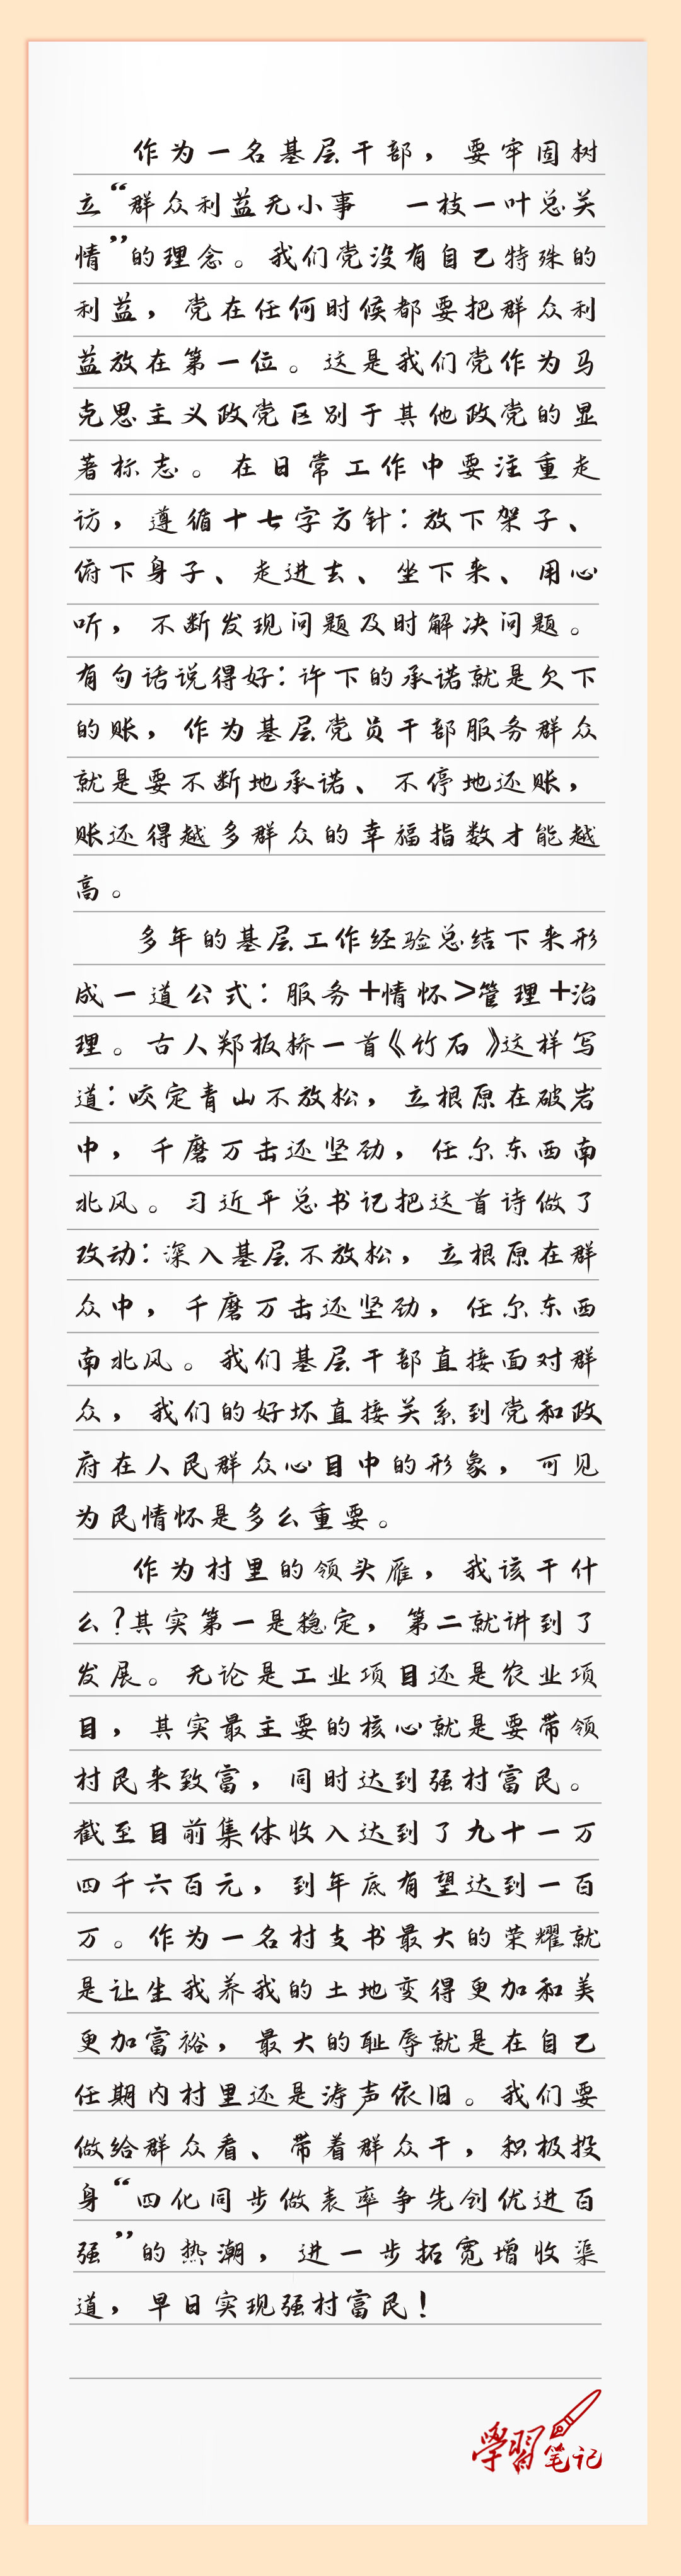 作为一名基层干部，要牢固树
立“群众利益无小事 一枝一叶总关
情”的理念。我们党没有自己特殊的
利益，党在任何时候都要把群众利
益放在第一位。这是我们党作为马
克思主义政党区别于其他政党的显
著标志。在日常工作中要注重走
访，遵循十七字方针：放下架子、
俯下身子、走进去、坐下来、用心
听，不断发现问题及时解决问题。
有句话说得好：许下的承诺就是欠下
的账，作为基层党员干部服务群众
就是要不断地承诺、不停地还账，
账还得越多群众的幸福指数才能越
高。
多年的基层工作经验总结下来形
成一道公式：服务+情怀>管理+治
理。古人郑板桥一首《竹石》这样写
道：咬定青山不放松，立根原在破岩
中，千磨万击还坚劲，任尔东西南
北风。习近平总书记把这首诗做了
改动：深入基层不放松，立根原在群
众中，千磨万击还坚劲，任尔东西
南北风。我们基层干部直接面对群
众，我们的好坏直接关系到党和政
府在人民群众心目中的形象，可见
为民情怀是多么重要。
作为村里的领头雁，我该干什
么？其实第一是稳定，第二就讲到了
发展。无论是工业项目还是农业项
目，其实最主要的核心就是要带领
村民来致富，同时达到强村富民。
截至目前集体收入达到了九十一万
四千六百元，到年底有望达到一百
万。作为一名村支书最大的荣耀就
是让生我养我的土地变得更加和美
更加富裕，最大的耻辱就是在自己
任期内村里还是涛声依旧。我们要
做给群众看、带着群众干，积极投
身“四化同步做表率争先创优进百
强”的热潮，进一步拓宽增收渠
道，早日实现强村富民！
學習笔记